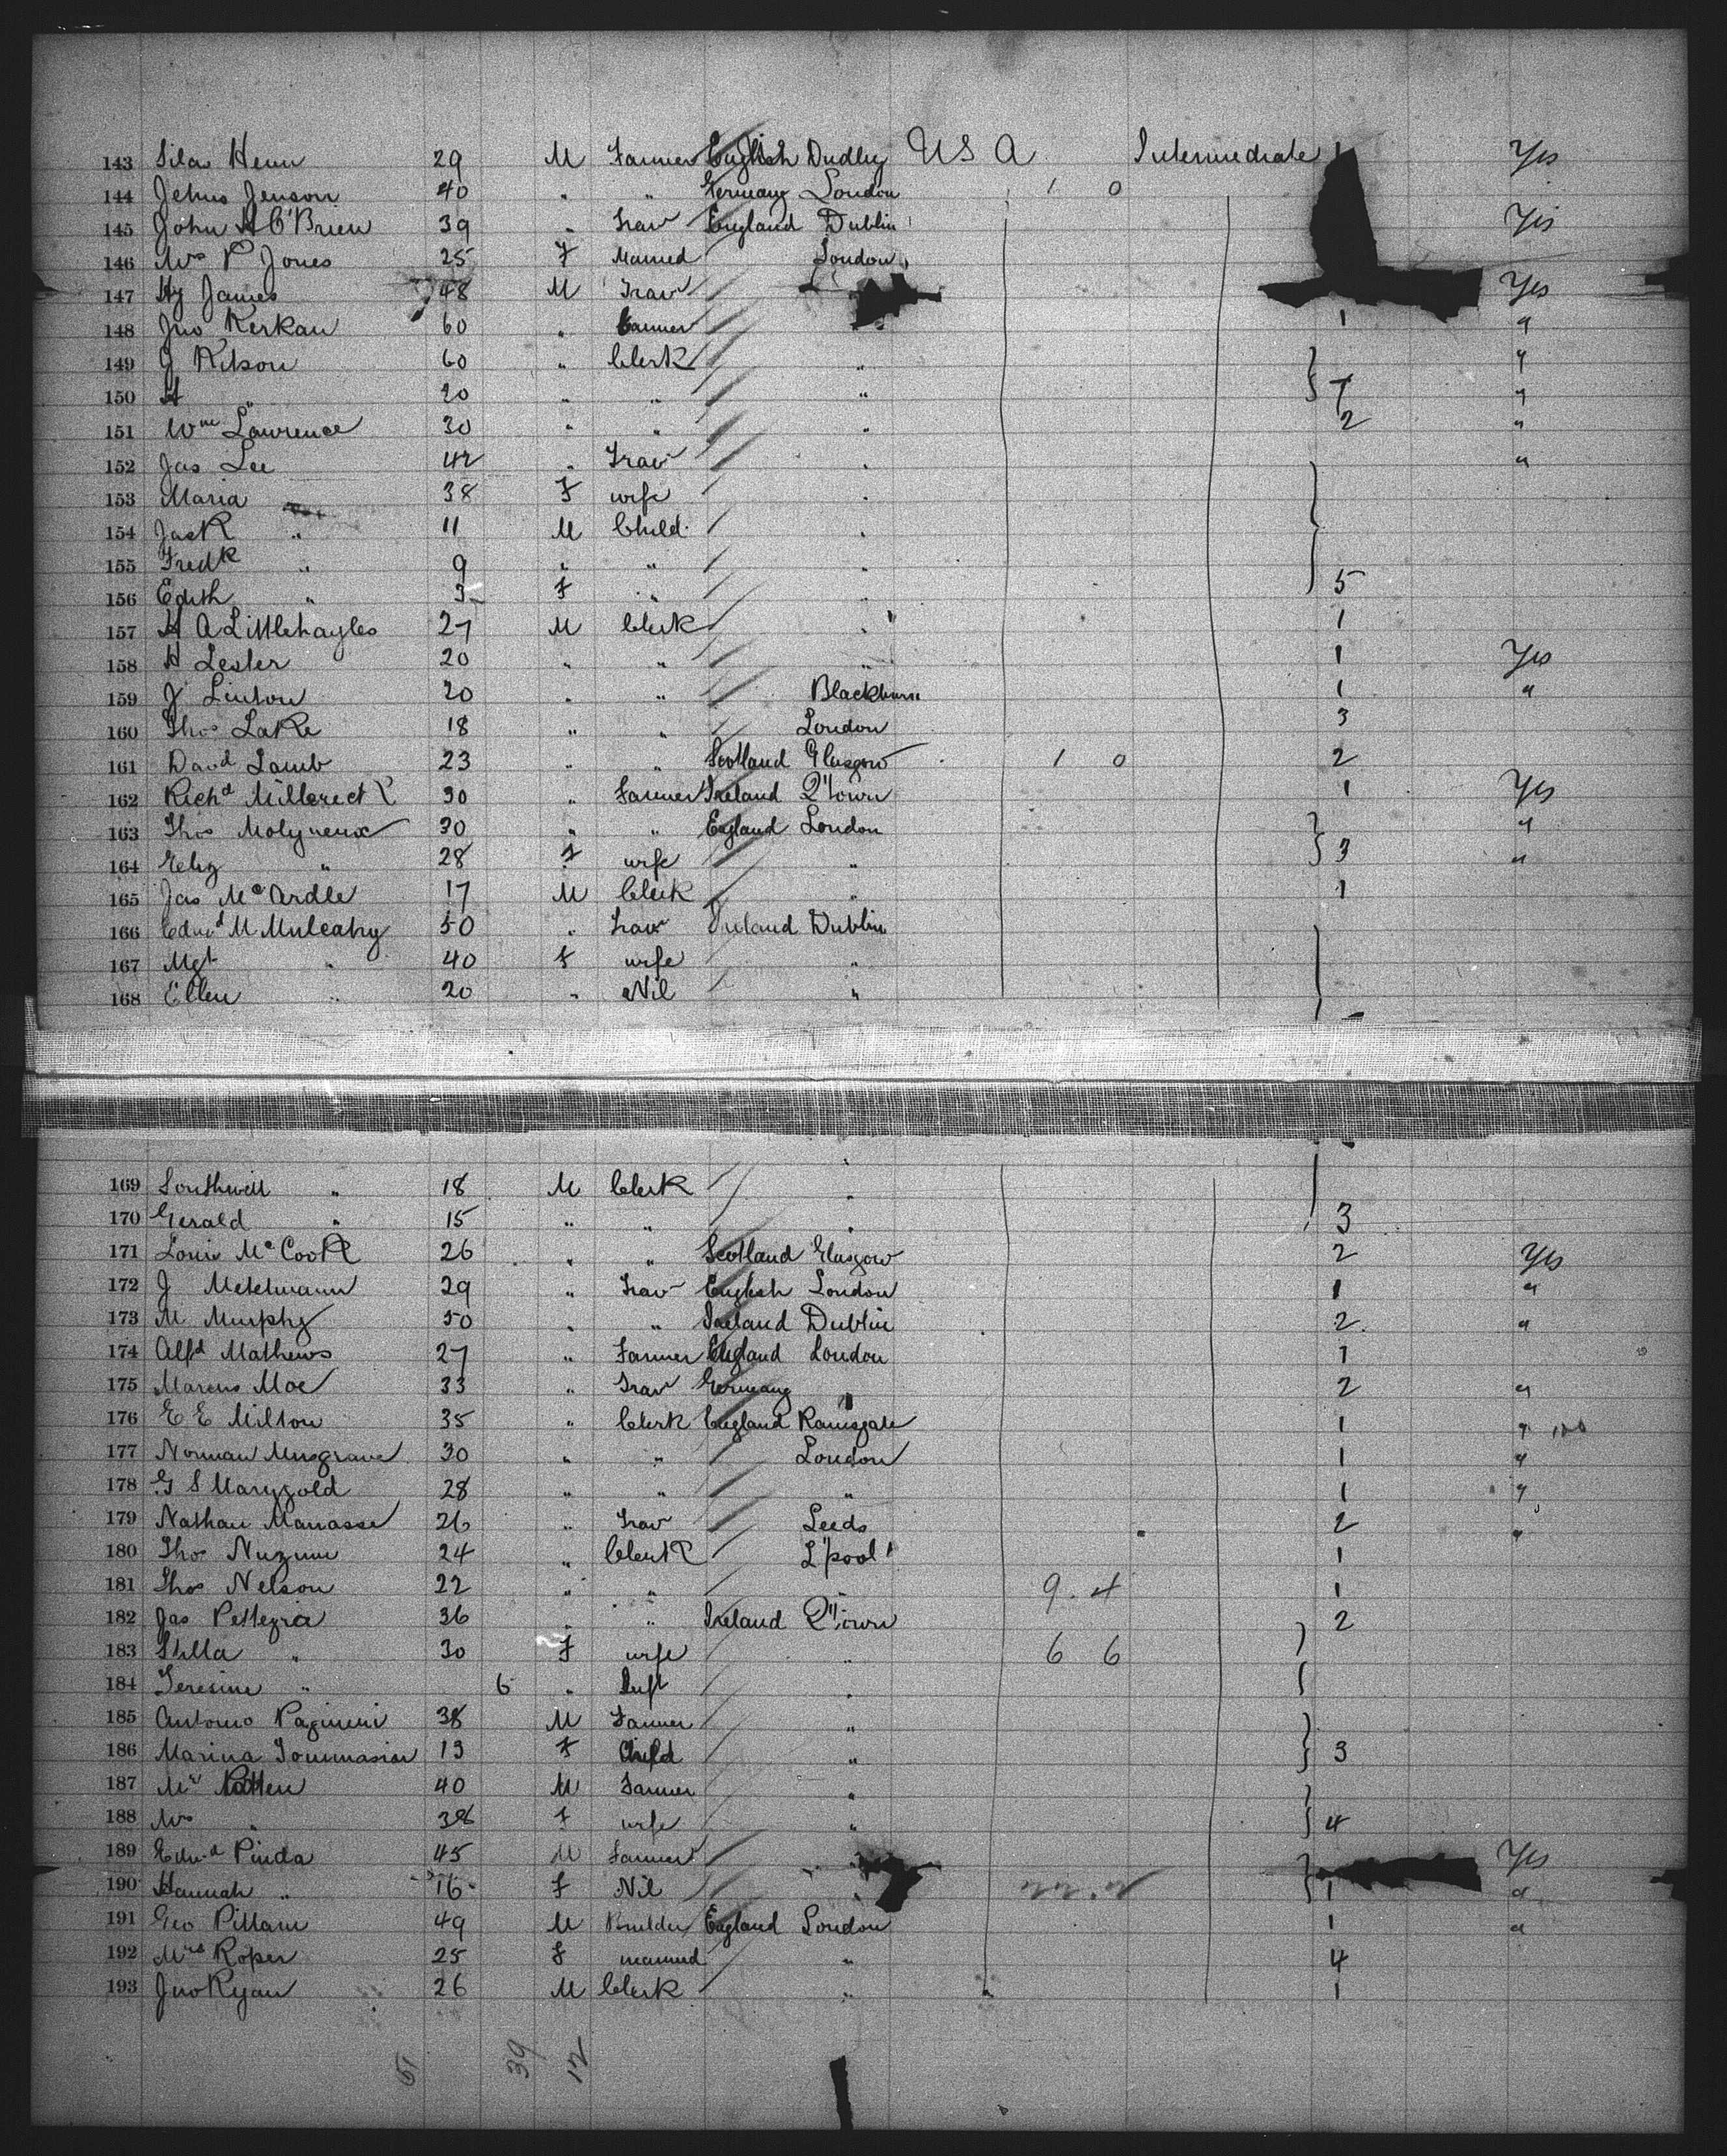 143 Silas Henn 29 M Farmer English Dudley U S A Intermediate 1 Yes
144 Jehus Jenson 40 " " Germany London 1 0
145 John H O'Brien 39 " Trav England Dublin Yes
146 Mrs P Jones 25 F Married London
147 Hy James 48 M Trav Yes
148 Jno Kerkau 60 " Farmer 1 "
149 G Kilson 60 " Clerk " "
150 H " 20 " " " 7 "
151 Wm Lawrence 30 " " " 2 "
152 Jas Lee 42 " Trav " "
153 Maria 38 F wife "
154 Jack " 11 M Child "
155 Fredk " 9 " " "
156 Edith " 3 F " " 5
157 H A Littlehayles 27 M Clerk " 1
158 H Lester 20 " " " 1 Yes
159 J Linton 20 " " Blackburn 1 "
160 Thos Lake 18 " " London 3
161 David Lamb 23 " " Scotland Glasgow 1 0 2
162 Richd 30 " Farmer Ireland Q'town 1 Yes
163 Thos Molyneux 30 " " England London "
164 Eliz " 28 F wife " 3 "
165 Jas McArdle 17 M Clerk " 1
166 Edwd M Mulcahy 50 " Trav Ireland Dublin
167 Mgt " 40 F wife "
168 Ellen " 20 " Nil "
169 Southwell " 18 M Clerk "
170 Gerald " 15 " " " 3
171 Louis McCook 26 " " Scotland Glasgow 2 Yes
172 J Metelmann 29 " Trav English London 1 "
173 M Murphy 50 " " Ireland Dublin 2 "
174 Alfd Mathews 27 " Farmer England London 1
175 Marcus Moe 33 " Trav Germany " 2 "
176 E E Milton 35 " Clerk England Ramsgate 1 "
177 Norman Musgrave 30 " " London 1 "
178 G S Marygold 28 " " " 1 "
179 Nathan Manasse 26 " Trav Leeds 2 "
180 Thos Nuzum 24 " Clerk L'pool 1
181 Thos Nelson 22 " " " 9.4 1
182 Jas Pettegria 36 " " Ireland Q'town 2
183 Stella " 30 F wife " 6 6
184 Teresina " 6 " Inft "
185 Antonio 38 M Farmer "
186 Marina Tommasian 13 F Child " 3
187 Mr Patten 40 M Farmer "
188 Mrs " 38 F wife " 4
189 Edwd Pinda 45 M Farmer Yes
190 Hannah " 16 F Nil " 1 "
191 Geo Pittam 49 M Builder England London 1 "
192 Mrs Roper 25 F married " 4
193 Jno Ryan 26 M Clerk " " 1
51 39 12